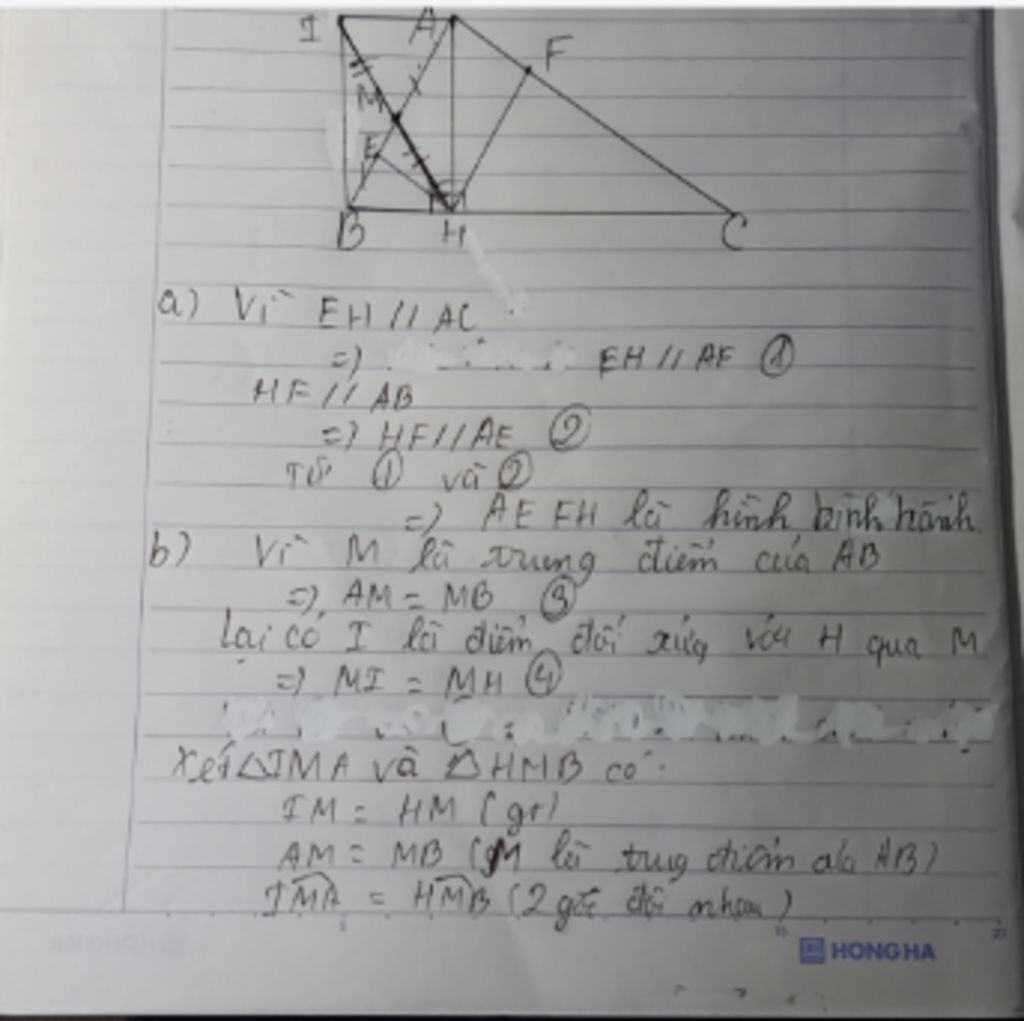 I A F
M
E
B H C
a) Vì EH // AC
=) EH // AF ①
HF // AB
=) HF // AE ②
Từ ① và ②
=) AEFH là hình bình hành
b) Vì M là trung điểm của AB
=) AM = MB ③
Lại có I là điểm đối xứng với H qua M
=) MI = MH ④
Xét △IMA và △HMB có:
IM = HM (gt)
AM = MB (M là trung điểm của AB)
IMA = HMB (2 góc đối nhau)
HONG HA